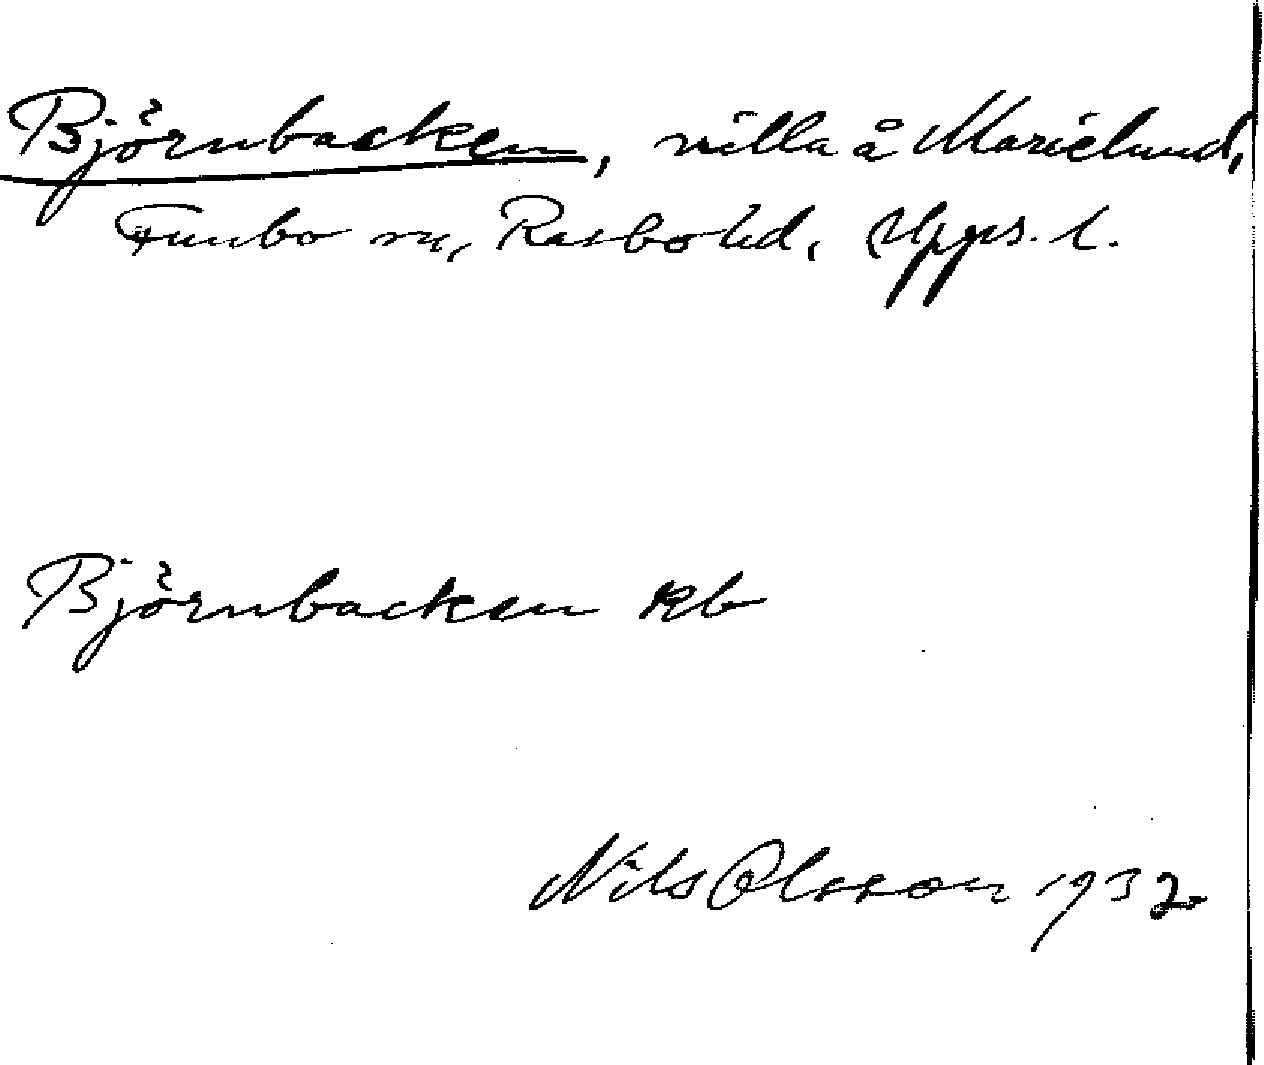 Björnbacken, villa å Marielund,
Funbo sn, Rasbo hd, Upps. l.
Björnbacken kb
Nils Olsson 1932